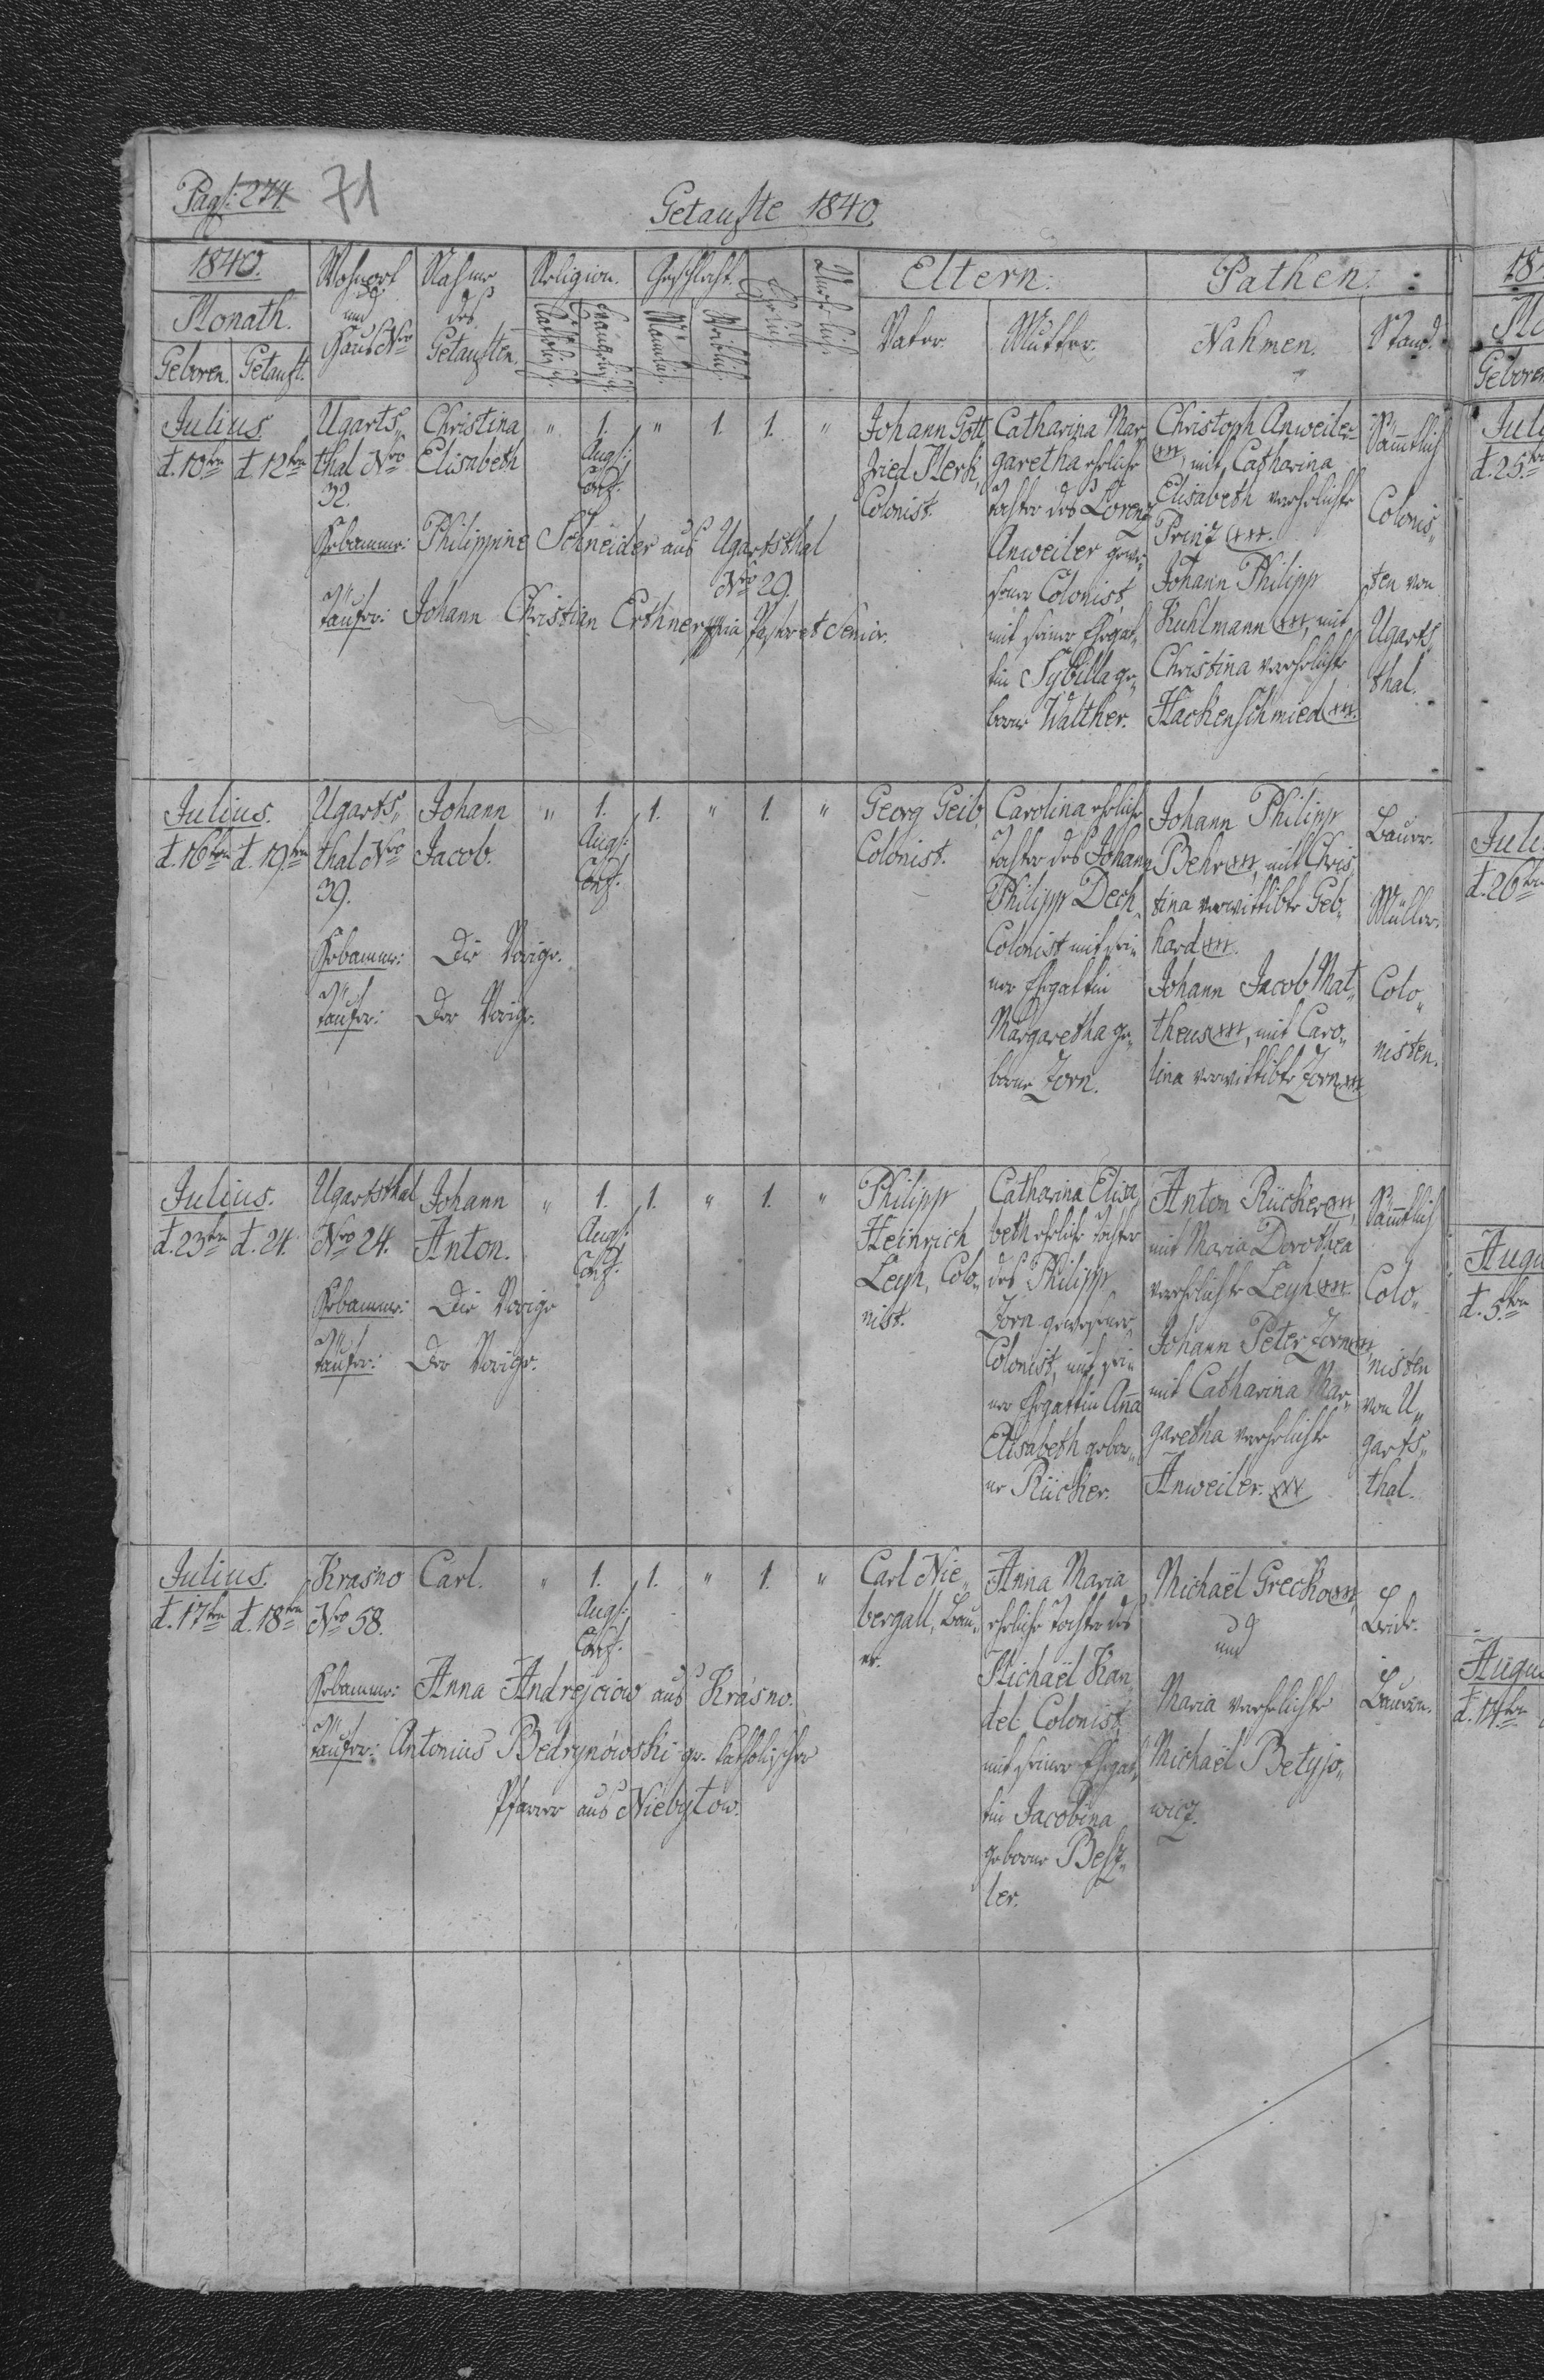 Pag: 274. 71
Getaufte 1840.
1840.
Monath.
Geboren. Getauft.
Wohnort
und
Haus Nro
Nahme
des
Getauften.
Religion.
Katholisch.
Evangelisch.
Geschlecht.
Männlich.
Weiblich.
Ehelich.
Unehelich.
Eltern.
Vater
Mutter.
Pathen.
Nahmen.
Stand.
Julius.
d. 10ten d. 12ten
Ugarts„
thal Nro
32.
Christina
Elisabeth
„ 1. „ 1. 1. „
Augs:
Conf.
Johann Gott
fried Merki,
Colonist.
Catharina Mar
garetha eheliche
Tochter des Lorenz
Anweiler gewe„
sener Colonist,
mit seiner Ehegat„
tin Sybilla ge„
borne Walther.
Christoph Anweiler
xxx, mit Catharina
Elisabeth verehelichte
Prinz xxx.
Johann Philipp
Kuhlmann xxx, mit
Christina verehelichte
Hackenschmied xxx.
Sämmtlich
Colonis„
ten von
Ugarts
thal.
Hebamme: Philippine Schneider aus Ugartsthal
Nro 29.
Täufer: Johann Christian Erthner Pastor et Senior.
Julius.
d. 16ten d. 19ten
Ugarts„
thal Nro
39.
Johann
Jacob.
„ 1. 1. „ 1. „
Augs:
Conf.
Georg Geib,
Colonist.
Carolina eheliche
Tochter des Johann
Philipp Dech
Colonist mit sei„
ner Ehegattin
Margaretha ge„
borne Zorn.
Johann Philipp
Behr xxx, mit Chris
tina verwittibte Geb„
hard xxx.
Johann Jacob Mat„
theus xxx, mit Caro„
lina verwittibte Zorn xxx
Bauer.
Müller.
Colo„
nisten.
Hebamme: Die Vorige.
Täufer: Der Vorige.
Julius.
d. 23ten d. 24.
Ugartsthal
Nro 24.
Johann
Anton.
„ 1. 1. „ 1. „
Augs:
Conf.
Philipp
Heinrich
Leyh, Colo„
nist.
Catharina Elisa
beth eheliche Tochter
des Philipp
Zorn gewesener
Colonist, mit sei„
ner Ehegattin Anna
Elisabeth gebor„
ne Rücker.
Anton Rücker xxx,
mit Maria Dorothea
verehelichte Leyh xxx.
Johann Peter Zorn xxx,
mit Catharina Mar„
garetha verehelichte
Anweiler. xxx
Sämmtlich
Colo„
nisten
von U„
garts„
thal.
Hebamme: Die Vorige
Täufer: Der Vorige.
Julius.
d. 17ten d. 18ten
Krasno
Nro 58.
Carl.
„ 1. 1. „ 1. „
Augs:
Conf.
Carl Nie„
bergall, Bau„
er.
Anna Maria
eheliche Tochter des
Michaël Kan
del Colonist,
mit seiner Ehegat„
tin Jacobina
geborne Besz„
ler.
Michaël Grecko xxx,
und
Maria verehelichte
Michaël Betyjo„
wicz.
Beide.
Bauern.
Hebamme: Anna Andrejciow aus Krasno.
Täufer: Antonius Bedrynowski gr. katholischer
Pfarrer aus Niebyłow.
184
Mo
Geboren
Juli
d. 25.ten
Juli
d. 26ten
Augu
d. 5.ten
Augu
d. 14ten